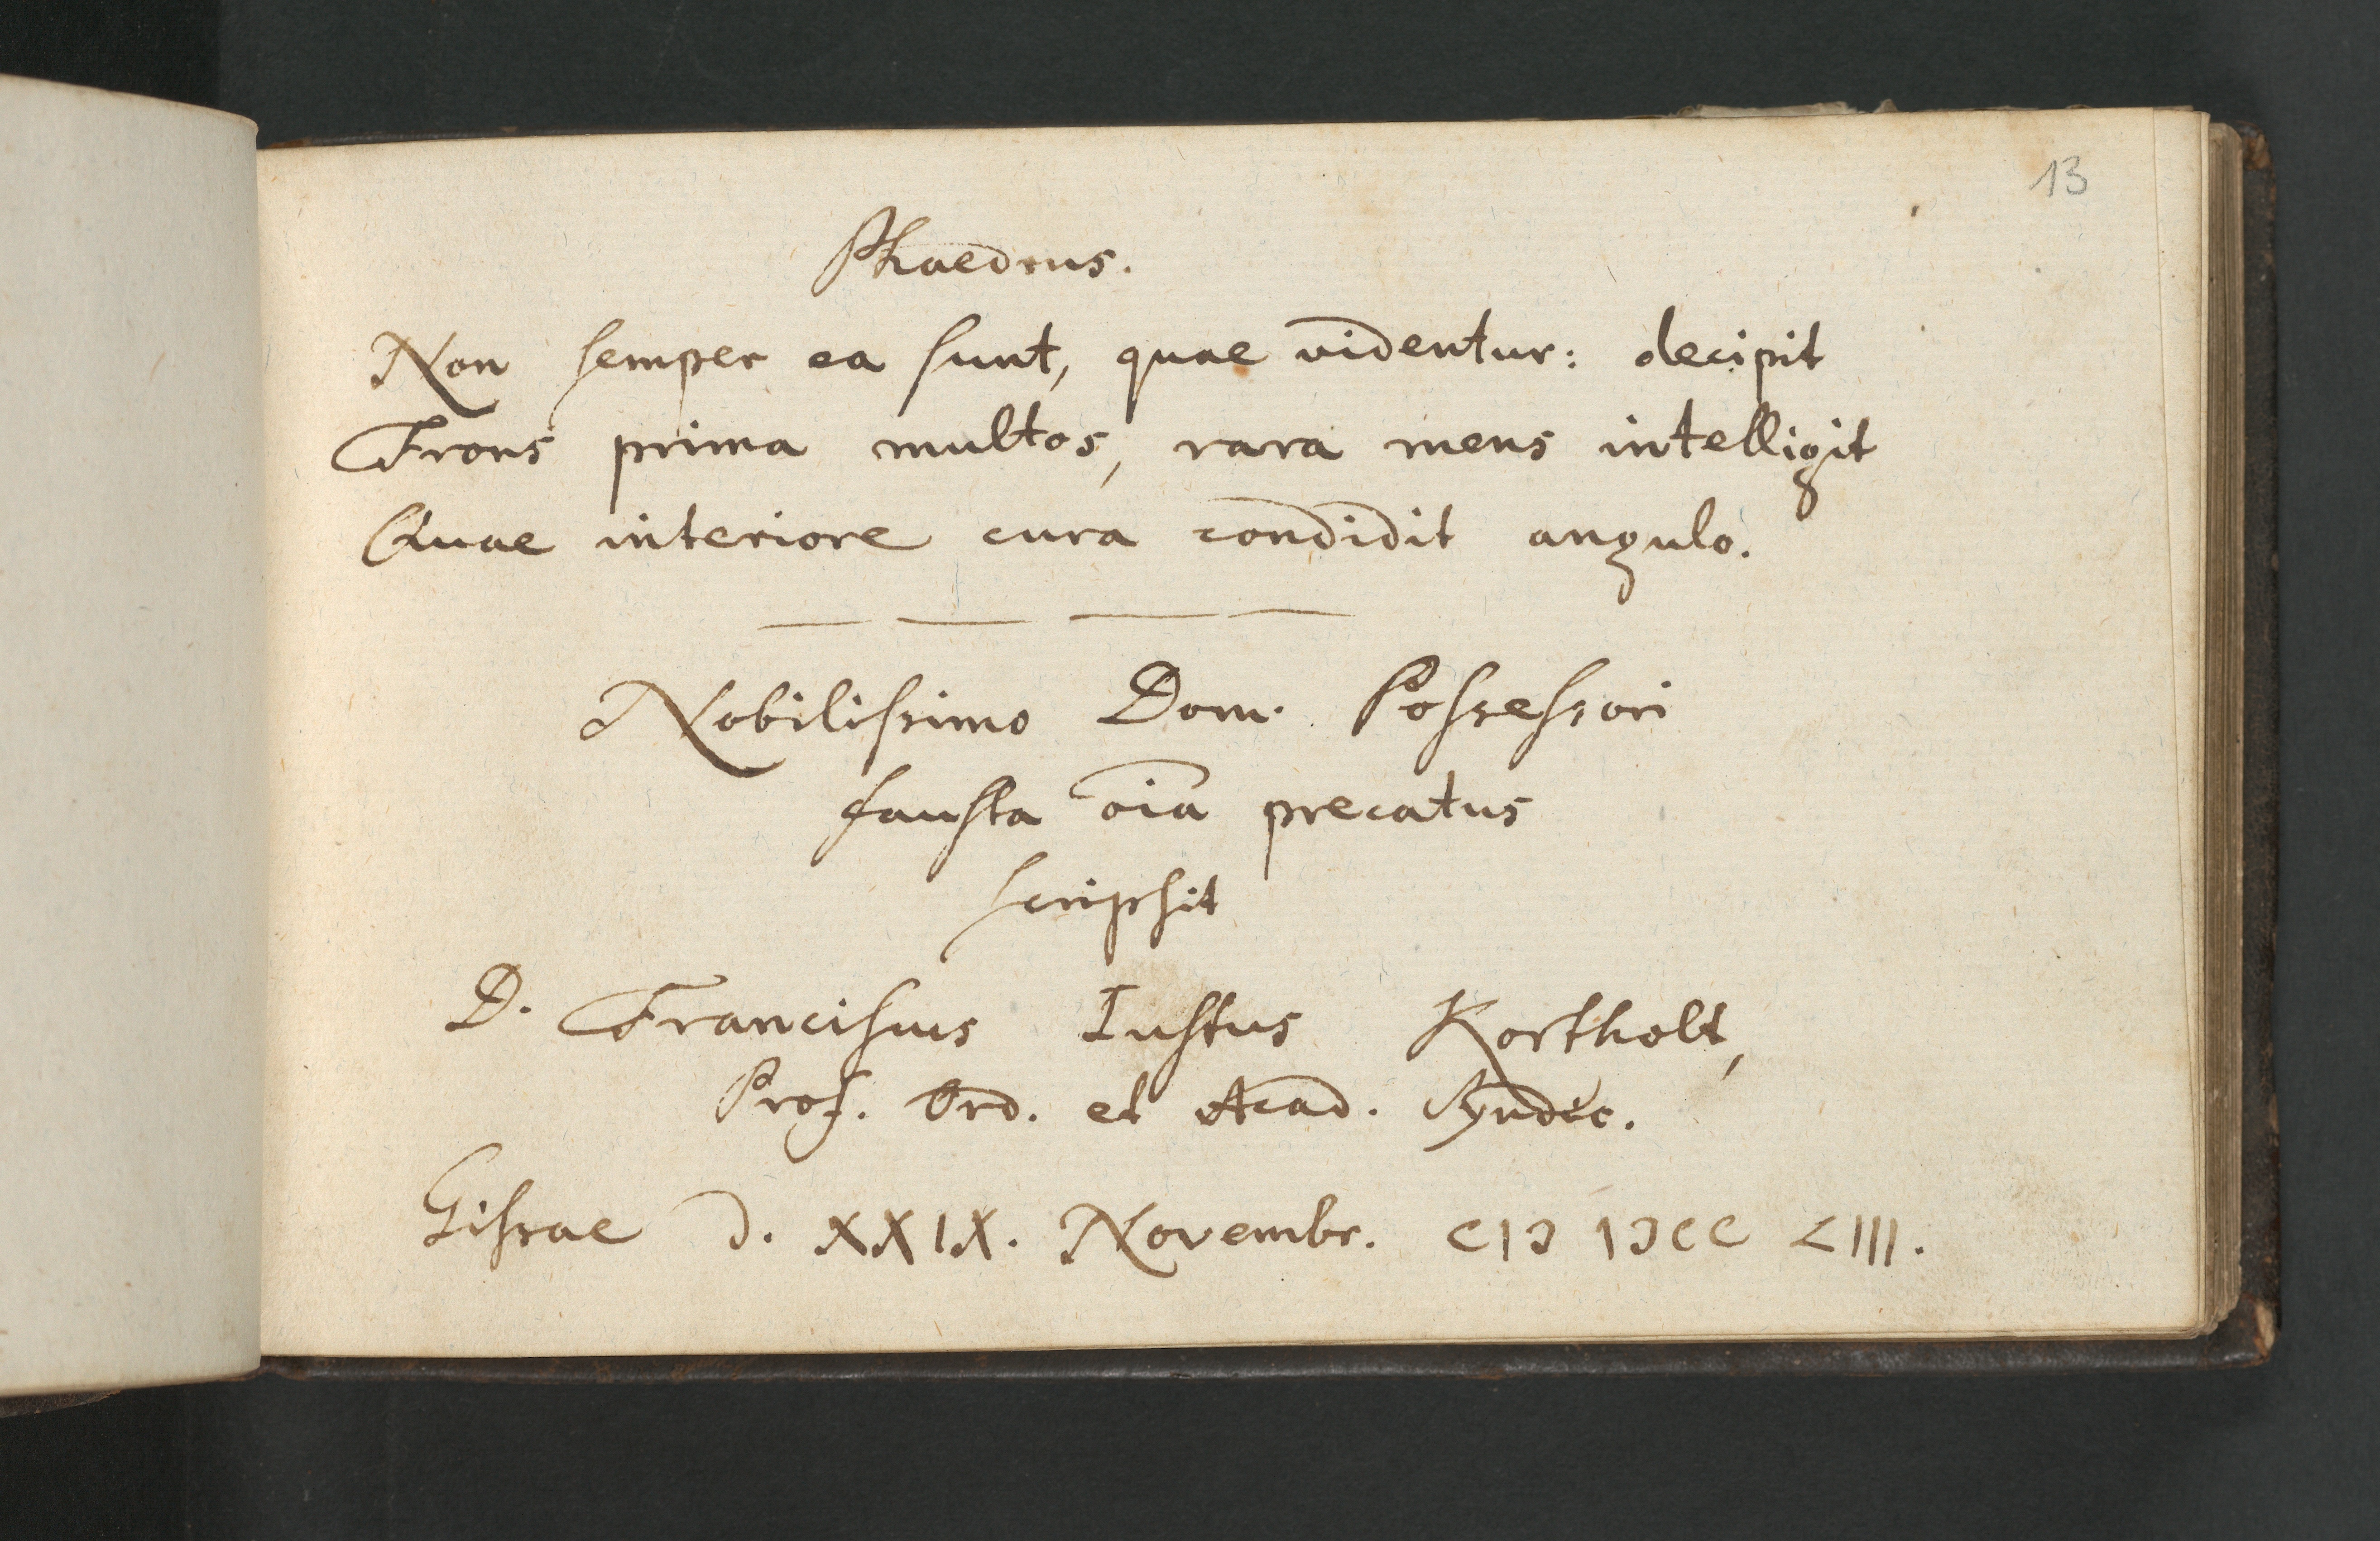 13
Phaedrus.
Non semper ea sunt, quae videntur: decipit
Frons prima multos, rara mens intelligit
Quae interiore cura condidit angulo.
Nobilissimo Dom. Possessori
fausta oīa precatus
scripsit
D. Franciscus Iustus Kortholt,
Prof. Ord. et Acad. Syndic.
Gissae d. XXIX. Novembr. CIↃ IↃCC LIII.